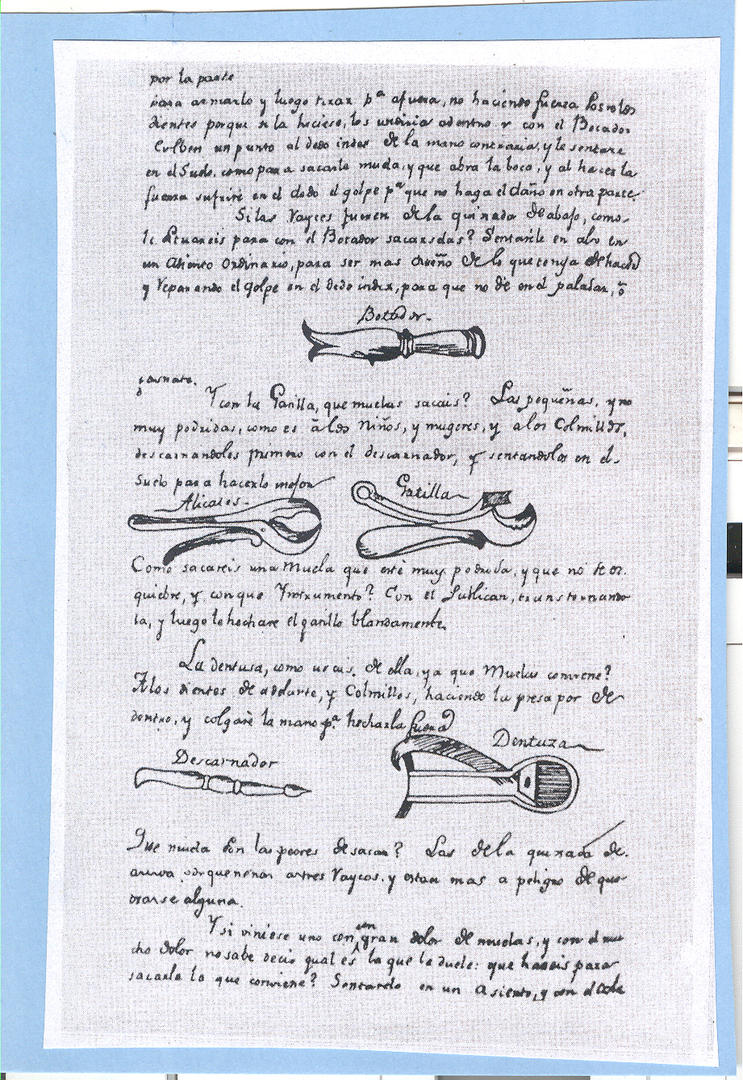 por la parte
para armarlo y luego tirar pª afuera, no haciendo fuerza los otros
dientes porque si la hiciese, los undiria adentro y con el Botador
un punto al dedo indee de la mano contraria, y le sentare
en el Suelo, como para sacarle muela, y que abra la boca, y al hacer la
fuerza sufrire en el dedo el golpe pª que no haga el daño en otra parte.
Si las Rayces fueren de la quixada de abajo, como
le para con el Botador sacarselas? Sentarele en alto en
un Asiento Ordinario, para ser mas dueño de lo que tenga de hacer
y reparando el golpe en el dedo index, para que no dé en el paladar, ō
Botador.
gasnate.
Y con la Gatilla, que muelas sacais? Las pequeñas, y no
muy podridas, como es â los Niños, y mugeres, y a los Colmillos,
descarnandoles primero con el descarnador, y sentandolos en el
Suelo para hacerlo mejor
Alicates.
Gatilla
Como sacareis una Muela que esté muy podrida, y que no se os
quiebre, y con que Ynstrumento? Con el Pulican, transtornando
la, y luego le hechare el gatillo blandamente.
La dentusa, como usais de ella, ya que Muelas conviene?
A los dientes de adelante, y Colmillos, haciendo la presa por de
dentro, y colgaré la mano pª hecharla fuera
Dentuza
Descarnador
Que muela son las peores de sacar? Las de la quixada de
arriva porque tienen a tres Rayces, y estan mas a peligro de que
brarse alguna.
Y si viniese uno con gran dolor de muelas, y con el mu
cho dolor no sabe decir qual es la que le duele: que haveis para
sacarle la que conviene? Sentarelo en un Asiento, y con el